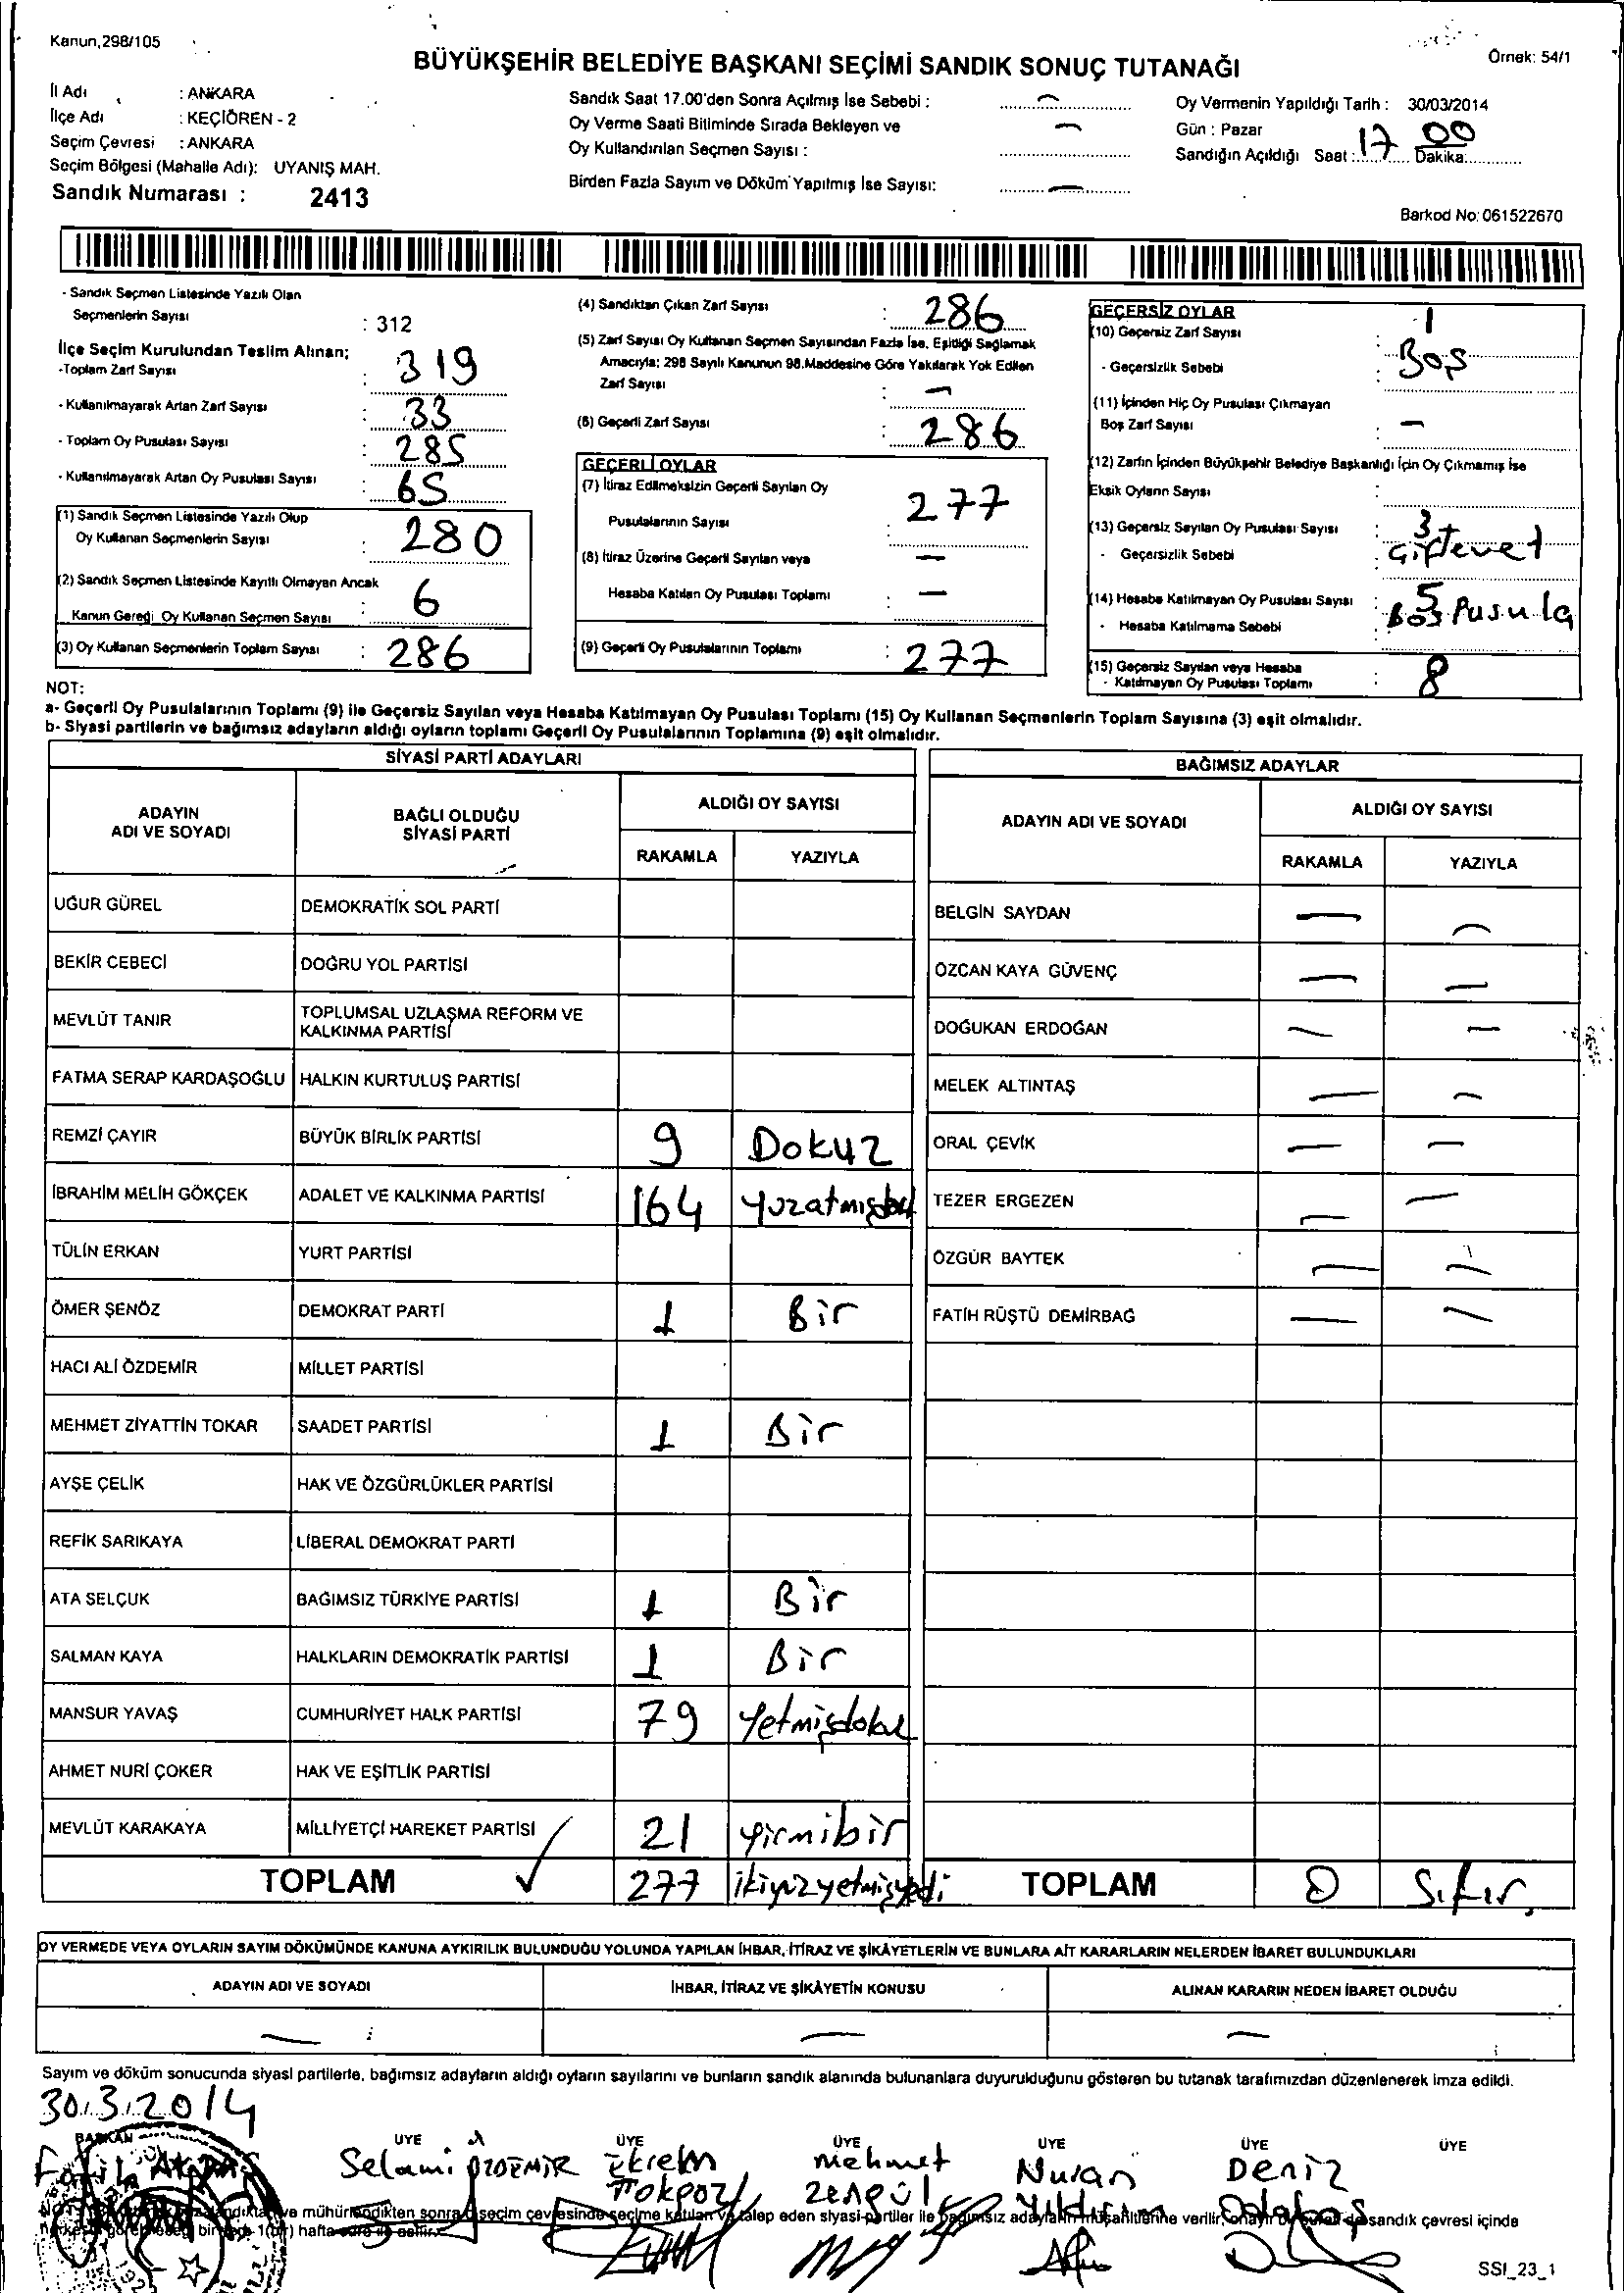 Kanun,298/105
Örnek: 54/1
BÜYÜKŞEHİR BELEDİYE BAŞKANI SEÇİMİ SANDIK SONUÇ TUTANAĞI
İl Adı : ANKARA
İlçe Adı : KEÇİÖREN - 2
Seçim Çevresi : ANKARA
Seçim Bölgesi (Mahalle Adı): UYANIŞ MAH.
Sandık Numarası : 2413
Sandık Saat 17.00'den Sonra Açılmış İse Sebebi : —
Oy Verme Saati Bitiminde Sırada Bekleyen ve —
Oy Kullandırılan Seçmen Sayısı :
Birden Fazla Sayım ve Döküm Yapılmış İse Sayısı: —
Oy Vermenin Yapıldığı Tarih : 30/03/2014
Gün : Pazar
Sandığın Açıldığı Saat : 17 Dakika: 00
Barkod No: 061522670
- Sandık Seçmen Listesinde Yazılı Olan
Seçmenlerin Sayısı : 312
İlçe Seçim Kurulundan Teslim Alınan;
-Toplam Zarf Sayısı : 319
- Kullanılmayarak Artan Zarf Sayısı : 33
- Toplam Oy Pusulası Sayısı : 285
- Kullanılmayarak Artan Oy Pusulası Sayısı : 65
(1) Sandık Seçmen Listesinde Yazılı Olup
Oy Kullanan Seçmenlerin Sayısı : 280
(2) Sandık Seçmen Listesinde Kayıtlı Olmayan Ancak
Kanun Gereği Oy Kullanan Seçmen Sayısı : 6
(3) Oy Kullanan Seçmenlerin Toplam Sayısı : 286
(4) Sandıktan Çıkan Zarf Sayısı : 286
(5) Zarf Sayısı Oy Kullanan Seçmen Sayısından Fazla İse, Eşitliği Sağlamak
Amacıyla; 298 Sayılı Kanunun 98.Maddesine Göre Yakılarak Yok Edilen
Zarf Sayısı : —
(6) Geçerli Zarf Sayısı : 286
GEÇERLİ OYLAR
(7) İtiraz Edilmeksizin Geçerli Sayılan Oy
Pusulalarının Sayısı : 277
(8) İtiraz Üzerine Geçerli Sayılan veya —
Hesaba Katılan Oy Pusulası Toplamı : —
(9) Geçerli Oy Pusulalarının Toplamı : 277
GEÇERSİZ OYLAR
(10) Geçersiz Zarf Sayısı : 1
- Geçersizlik Sebebi : Boş
(11) İçinden Hiç Oy Pusulası Çıkmayan
Boş Zarf Sayısı : —
(12) Zarfın İçinden Büyükşehir Belediye Başkanlığı İçin Oy Çıkmamış İse
Eksik Oyların Sayısı :
(13) Geçersiz Sayılan Oy Pusulası Sayısı : 3
- Geçersizlik Sebebi : Çiftevet
(14) Hesaba Katılmayan Oy Pusulası Sayısı : 5
- Hesaba Katılmama Sebebi : Boş Pusula
(15) Geçersiz Sayılan veya Hesaba
- Katılmayan Oy Pusulası Toplamı : 8
NOT:
a- Geçerli Oy Pusulalarının Toplamı (9) ile Geçersiz Sayılan veya Hesaba Katılmayan Oy Pusulası Toplamı (15) Oy Kullanan Seçmenlerin Toplam Sayısına (3) eşit olmalıdır.
b- Siyasi partilerin ve bağımsız adayların aldığı oyların toplamı Geçerli Oy Pusulalarının Toplamına (9) eşit olmalıdır.
SİYASİ PARTİ ADAYLARI
ADAYIN ADI VE SOYADI BAĞLI OLDUĞU SİYASİ PARTİ ALDIĞI OY SAYISI
RAKAMLA YAZIYLA
UĞUR GÜREL DEMOKRATİK SOL PARTİ
BEKİR CEBECİ DOĞRU YOL PARTİSİ
MEVLÜT TANIR TOPLUMSAL UZLAŞMA REFORM VE KALKINMA PARTİSİ
FATMA SERAP KARDAŞOĞLU HALKIN KURTULUŞ PARTİSİ
REMZİ ÇAYIR BÜYÜK BİRLİK PARTİSİ 9 Dokuz
İBRAHİM MELİH GÖKÇEK ADALET VE KALKINMA PARTİSİ 164 yüzatmışdört
TÜLİN ERKAN YURT PARTİSİ
ÖMER ŞENÖZ DEMOKRAT PARTİ 1 Bir
HACI ALİ ÖZDEMİR MİLLET PARTİSİ
MEHMET ZİYATTİN TOKAR SAADET PARTİSİ 1 Bir
AYŞE ÇELİK HAK VE ÖZGÜRLÜKLER PARTİSİ
REFİK SARIKAYA LİBERAL DEMOKRAT PARTİ
ATA SELÇUK BAĞIMSIZ TÜRKİYE PARTİSİ 1 Bir
SALMAN KAYA HALKLARIN DEMOKRATİK PARTİSİ 1 Bir
MANSUR YAVAŞ CUMHURİYET HALK PARTİSİ 79 Yetmişdokuz
AHMET NURİ ÇOKER HAK VE EŞİTLİK PARTİSİ
MEVLÜT KARAKAYA MİLLİYETÇİ HAREKET PARTİSİ 21 yirmibir
TOPLAM 277 ikiyüzyetmişyedi
BAĞIMSIZ ADAYLAR
ADAYIN ADI VE SOYADI ALDIĞI OY SAYISI
RAKAMLA YAZIYLA
BELGİN SAYDAN — —
ÖZCAN KAYA GÜVENÇ — —
DOĞUKAN ERDOĞAN — —
MELEK ALTINTAŞ — —
ORAL ÇEVİK — —
TEZER ERGEZEN — —
ÖZGÜR BAYTEK — —
FATİH RÜŞTÜ DEMİRBAĞ — —
TOPLAM 0 Sıfır
OY VERMEDE VEYA OYLARIN SAYIM DÖKÜMÜNDE KANUNA AYKIRILIK BULUNDUĞU YOLUNDA YAPILAN İHBAR, İTİRAZ VE ŞİKÂYETLERİN VE BUNLARA AİT KARARLARIN NELERDEN İBARET BULUNDUKLARI
ADAYIN ADI VE SOYADI İHBAR, İTİRAZ VE ŞİKÂYETİN KONUSU ALINAN KARARIN NEDEN İBARET OLDUĞU
— — —
Sayım ve döküm sonucunda siyasi partilerle, bağımsız adayların aldığı oyların sayılarını ve bunların sandık alanında bulunanlara duyurulduğunu gösteren bu tutanak tarafımızdan düzenlenerek imza edildi.
30.3.2014
BAŞKAN ÜYE ÜYE ÜYE ÜYE ÜYE ÜYE
Fatih Selami ÖZDEMİR Ekrem Mehmet Nuran Deniz
Tokpoz Zengül Yıldırım Odabaş
ve mühürlendikten sonra seçim çevresinde seçime katılan ve talep eden siyasi partiler ile bağımsız adayların müşahitlerine verilir, sandık çevresi içinde
1(bir) hafta süre ile asılır.
SSI_23_1